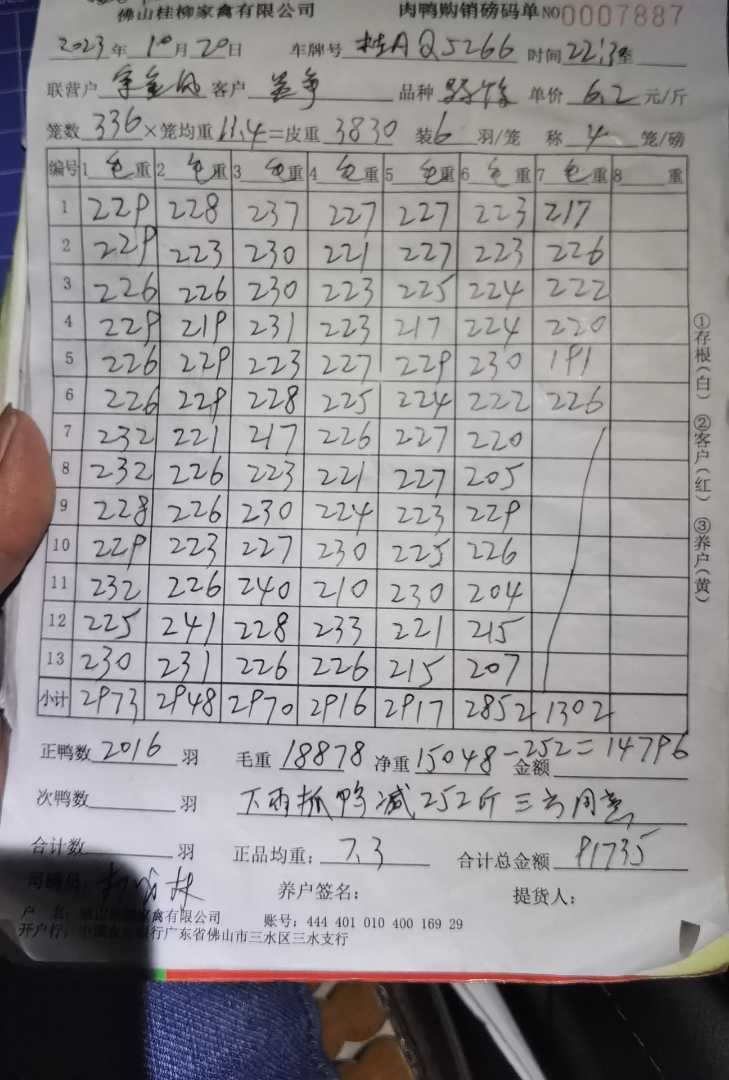 佛山桂柳家禽有限公司 肉鸭购销磅码单 NO 0007887
2023年10月20日 车牌号 桂AQ5266 时间 22:3
联营户 客户 品种 单价 6.2 元/斤
笼数 336 ×笼均重 11.4 =皮重 3830 装 6 羽/笼 称 4 笼/磅
编号 1 毛重 2 毛重 3 毛重 4 毛重 5 毛重 6 毛重 7 毛重 8 重
1 229 228 237 227 227 223 217
2 229 223 230 221 227 223 226
3 226 226 230 223 225 224 222
4 229 219 231 223 217 224 220
5 226 229 223 227 229 230 191
6 226 229 228 225 224 222 226
7 232 221 217 226 227 220
8 232 226 223 221 227 205
9 228 226 230 224 223 229
10 229 223 227 230 225 226
11 232 226 240 210 230 204
12 225 241 228 233 221 215
13 230 231 226 226 215 207
小计 2973 2948 2970 2916 2917 2852 1302
正鸭数 2016 羽 毛重 18878 净重 15048-252=14796 金额
次鸭数 羽 下雨抓鸭减252斤三方同意
合计数 羽 正品均重: 7.3 合计总金额 91735
司磅员: 养户签名: 提货人:
户 名: 佛山桂柳家禽有限公司 账号: 444 401 010 400 169 29
开户行: 中国农业银行广东省佛山市三水区三水支行
①存根(白) ②客户(红) ③养户(黄)